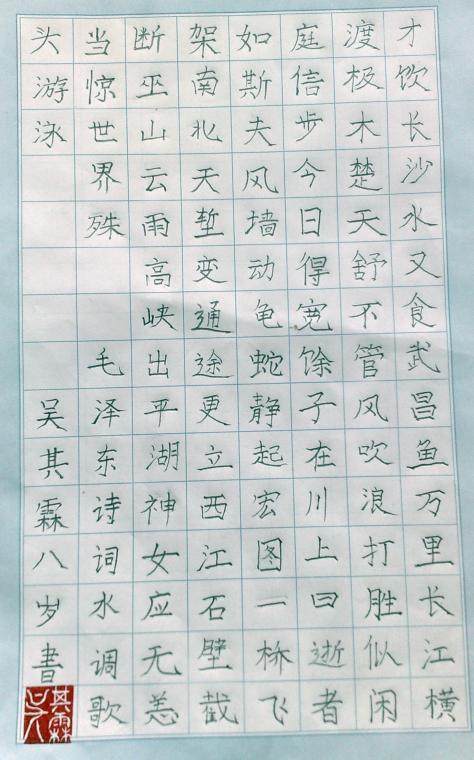 才饮长沙水又食武昌鱼万里长江横
渡极木楚天舒不管风吹浪打胜似闲
庭信步今日得宽馀子在川上曰逝者
如斯夫风墙动龟蛇静起宏图一桥飞
架南北天堑变通途更立西江石壁截
断巫山云雨高峡出平湖神女应无恙
当惊世界殊 毛泽东诗词水调歌
头游泳 吴其霖八岁书
吴其霖